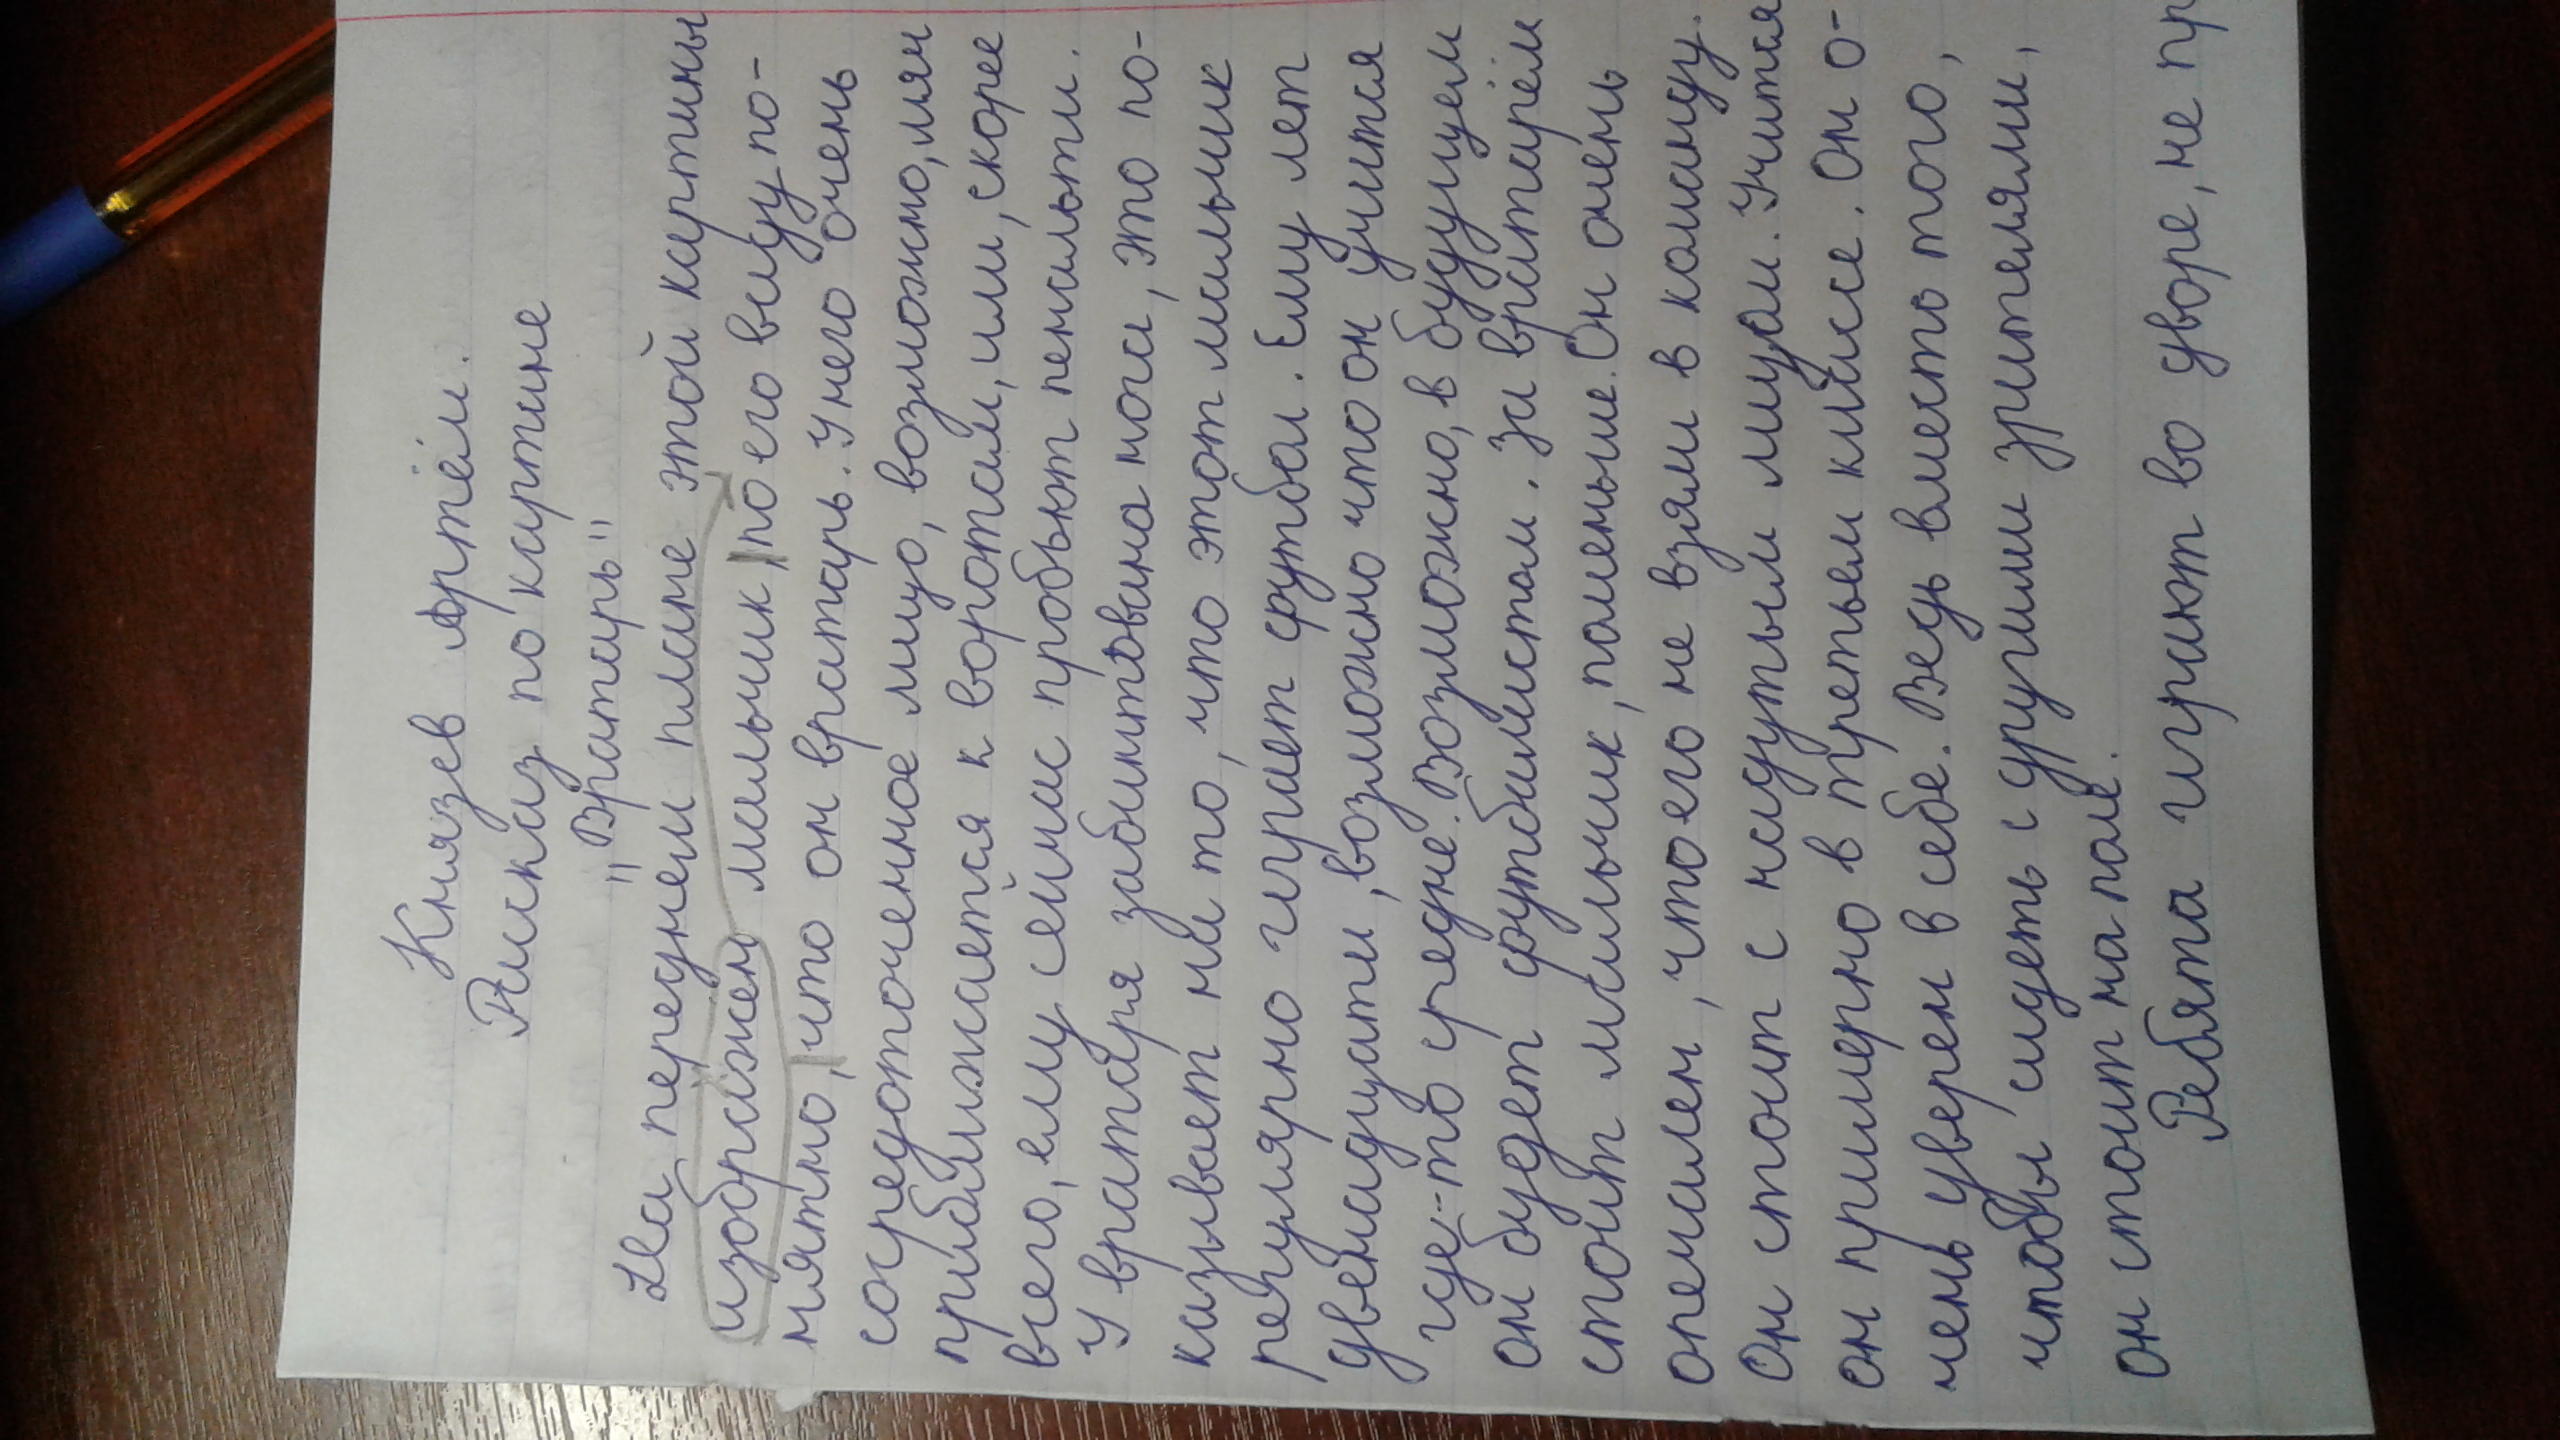 Князев Артём.
Рассказ по картине
„Вратарь"
На переднем плане этой картины
изображен мальчик, по его виду по-
нятно, что он вратарь. У него очень
сосредоточенное лицо, возможно, мяч
приближается к воротам, или, скорее
всего, ему сейчас пробьют пенальти.
У вратаря забинтована нога, это по-
казывает на то, что этот мальчик
регулярно играет футбол. Ему лет
двенадцати, возможно что он учится
где-то средне. Возможно, в будущем
он будет футбалистом. За вратарём
стоит мальчик, поменьше. Он очень
опечален, что его не взяли в команду.
Он стоит с надутым лицом. Учится
он примерно в третьем классе. Он о-
чень уверен в себе. Ведь вместо того,
чтобы сидеть с другими зрителями,
он стоит на поле.
Ребята играют во дворе, не пр